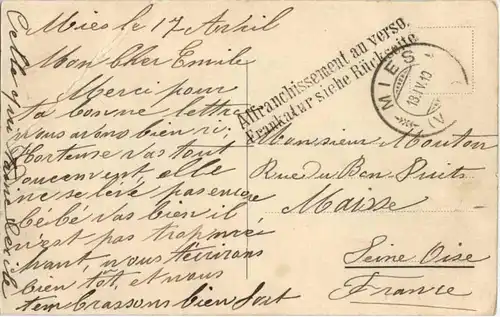 Mies le 17 Avril
Mon Cher Emile
Merci pour
ta bonne lettre
nous avons bien ri,
Hortense vas tout
doucement elle
ne se lève pas encore
Bébé vas bien il
n'est pas trop mé
chant, nous t'écrirons
bien tôt, et nous
t'embrassons bien fort
Celle qui t'aime
Affranchissement au verso.
Frankatur siehe Rückseite
MIES
18.IV.10
(V
Monsieur Mouton
Rue du Bon Puits
Maisse
Seine Oise
France